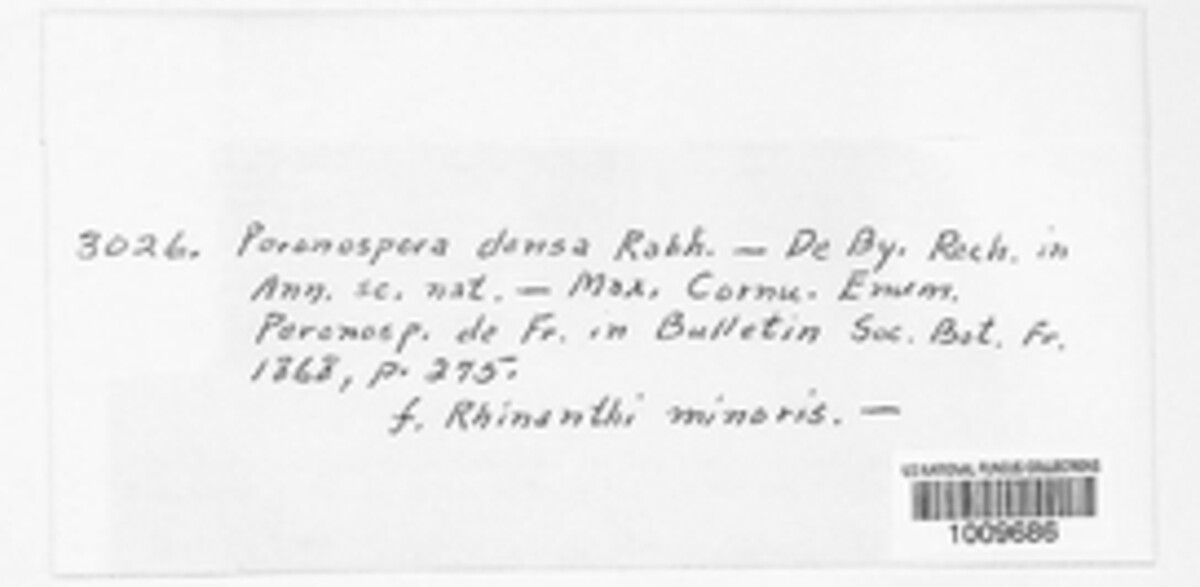 3026. Peronospera densa Rabh. — De By. Rech. in
Ann. sc. nat. — Max. Cornu. Enum.
Peronosp. de Fr. in Bulletin Soc. Bot. Fr.
1868, p. 295.
f. Rhinanthi minoris. —
US NATIONAL FUNGUS COLLECTIONS
1009686